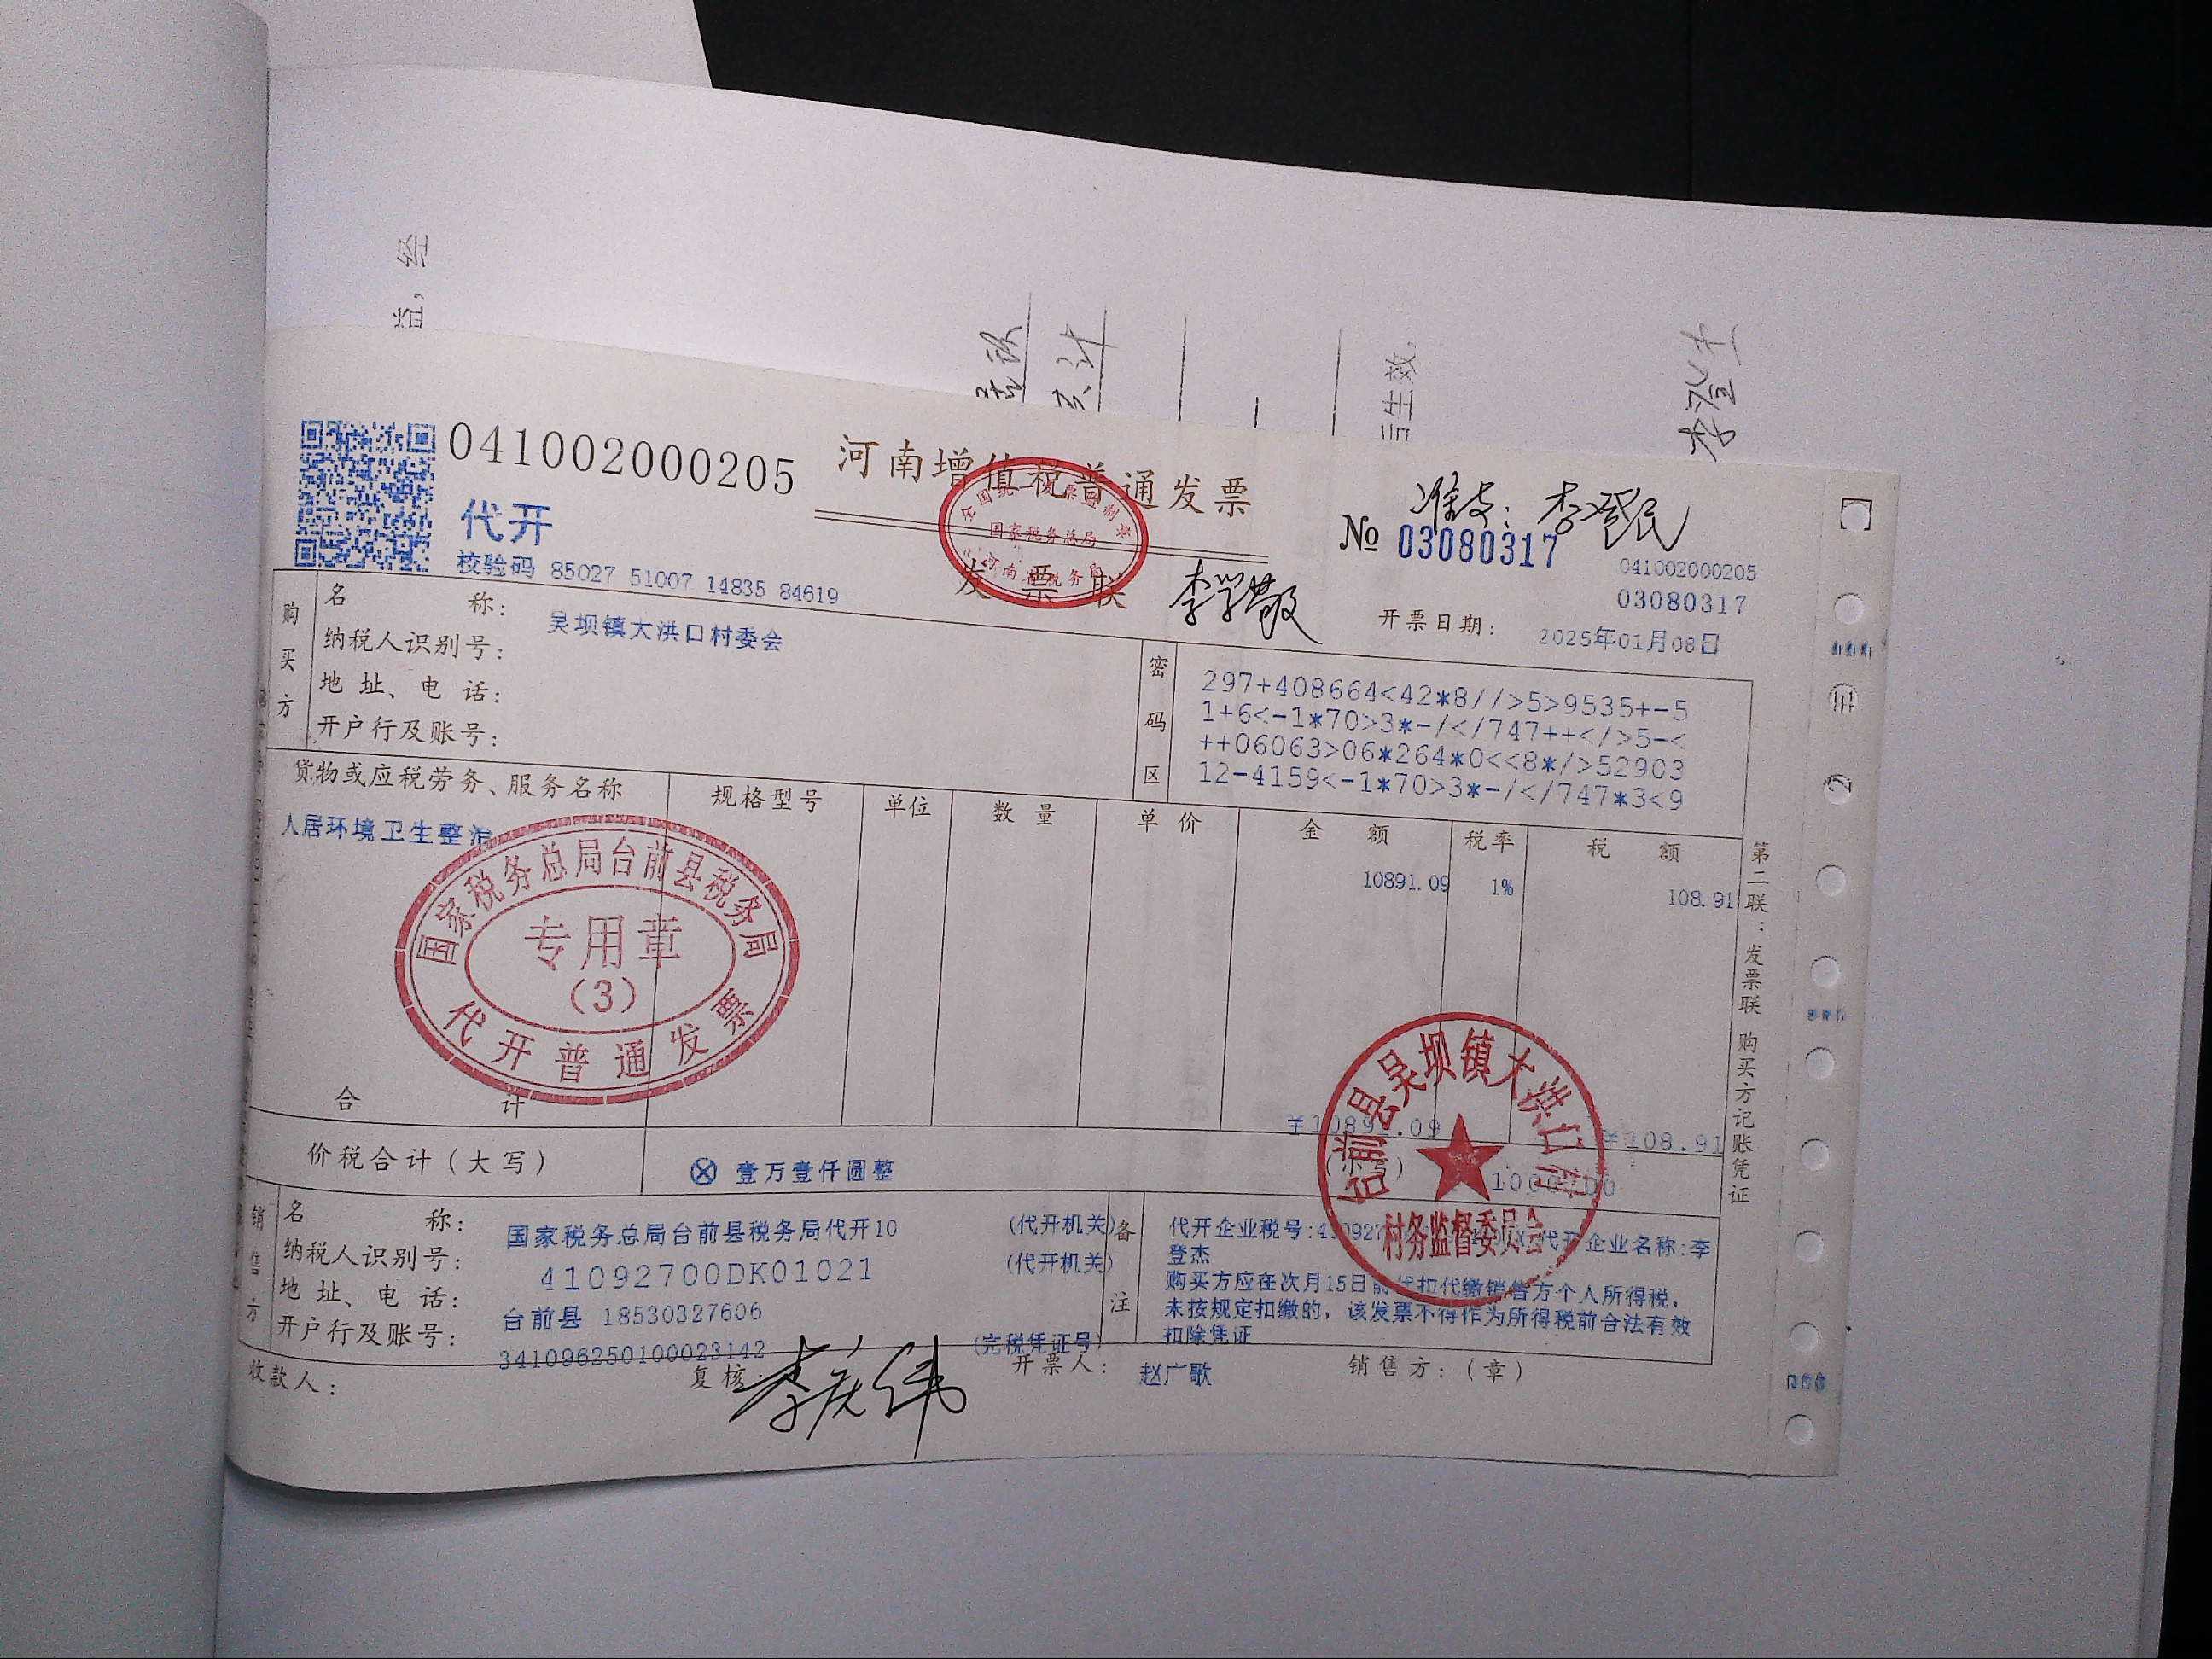 益，经
当生效，
041002000205
河南增值税普通发票
代开
全国统一发票监制章
国家税务总局
河南省税务局
发票联
准支：李登民
№ 03080317
041002000205
03080317
校验码 85027 51007 14835 84619
开票日期： 2025年01月08日
购买方
名 称： 吴坝镇大洪口村委会
纳税人识别号：
地 址、电 话：
开户行及账号：
密码区
297+408664<42*8//>5>9535+-5
1+6<-1*70>3*-/</747++</>5-<
++06063>06*264*0<<8*/>52903
12-4159<-1*70>3*-/</747*3<9
货物或应税劳务、服务名称 规格型号 单位 数 量 单 价 金 额 税率 税 额
人居环境卫生整治 10891.09 1% 108.91
国家税务总局台前县税务局
专用章
(3)
代开普通发票
合 计 ¥10891.09 ¥108.91
价税合计（大写） ⊗ 壹万壹仟圆整
台前县吴坝镇大洪口
村务监督委员会
销售方
名 称： 国家税务总局台前县税务局代开10 (代开机关)
纳税人识别号： 41092700DK01021 (代开机关)
地 址、电 话： 台前县 18530327606
开户行及账号： 341096250100023142 (完税凭证号)
备注
代开企业税号:410927 代开企业名称:李
登杰
购买方应在次月15日前代扣代缴销售方个人所得税，
未按规定扣缴的，该发票不得作为所得税前合法有效
扣除凭证
收款人： 复核： 开票人： 赵广歌 销售方：（章）
第二联：发票联 购买方记账凭证